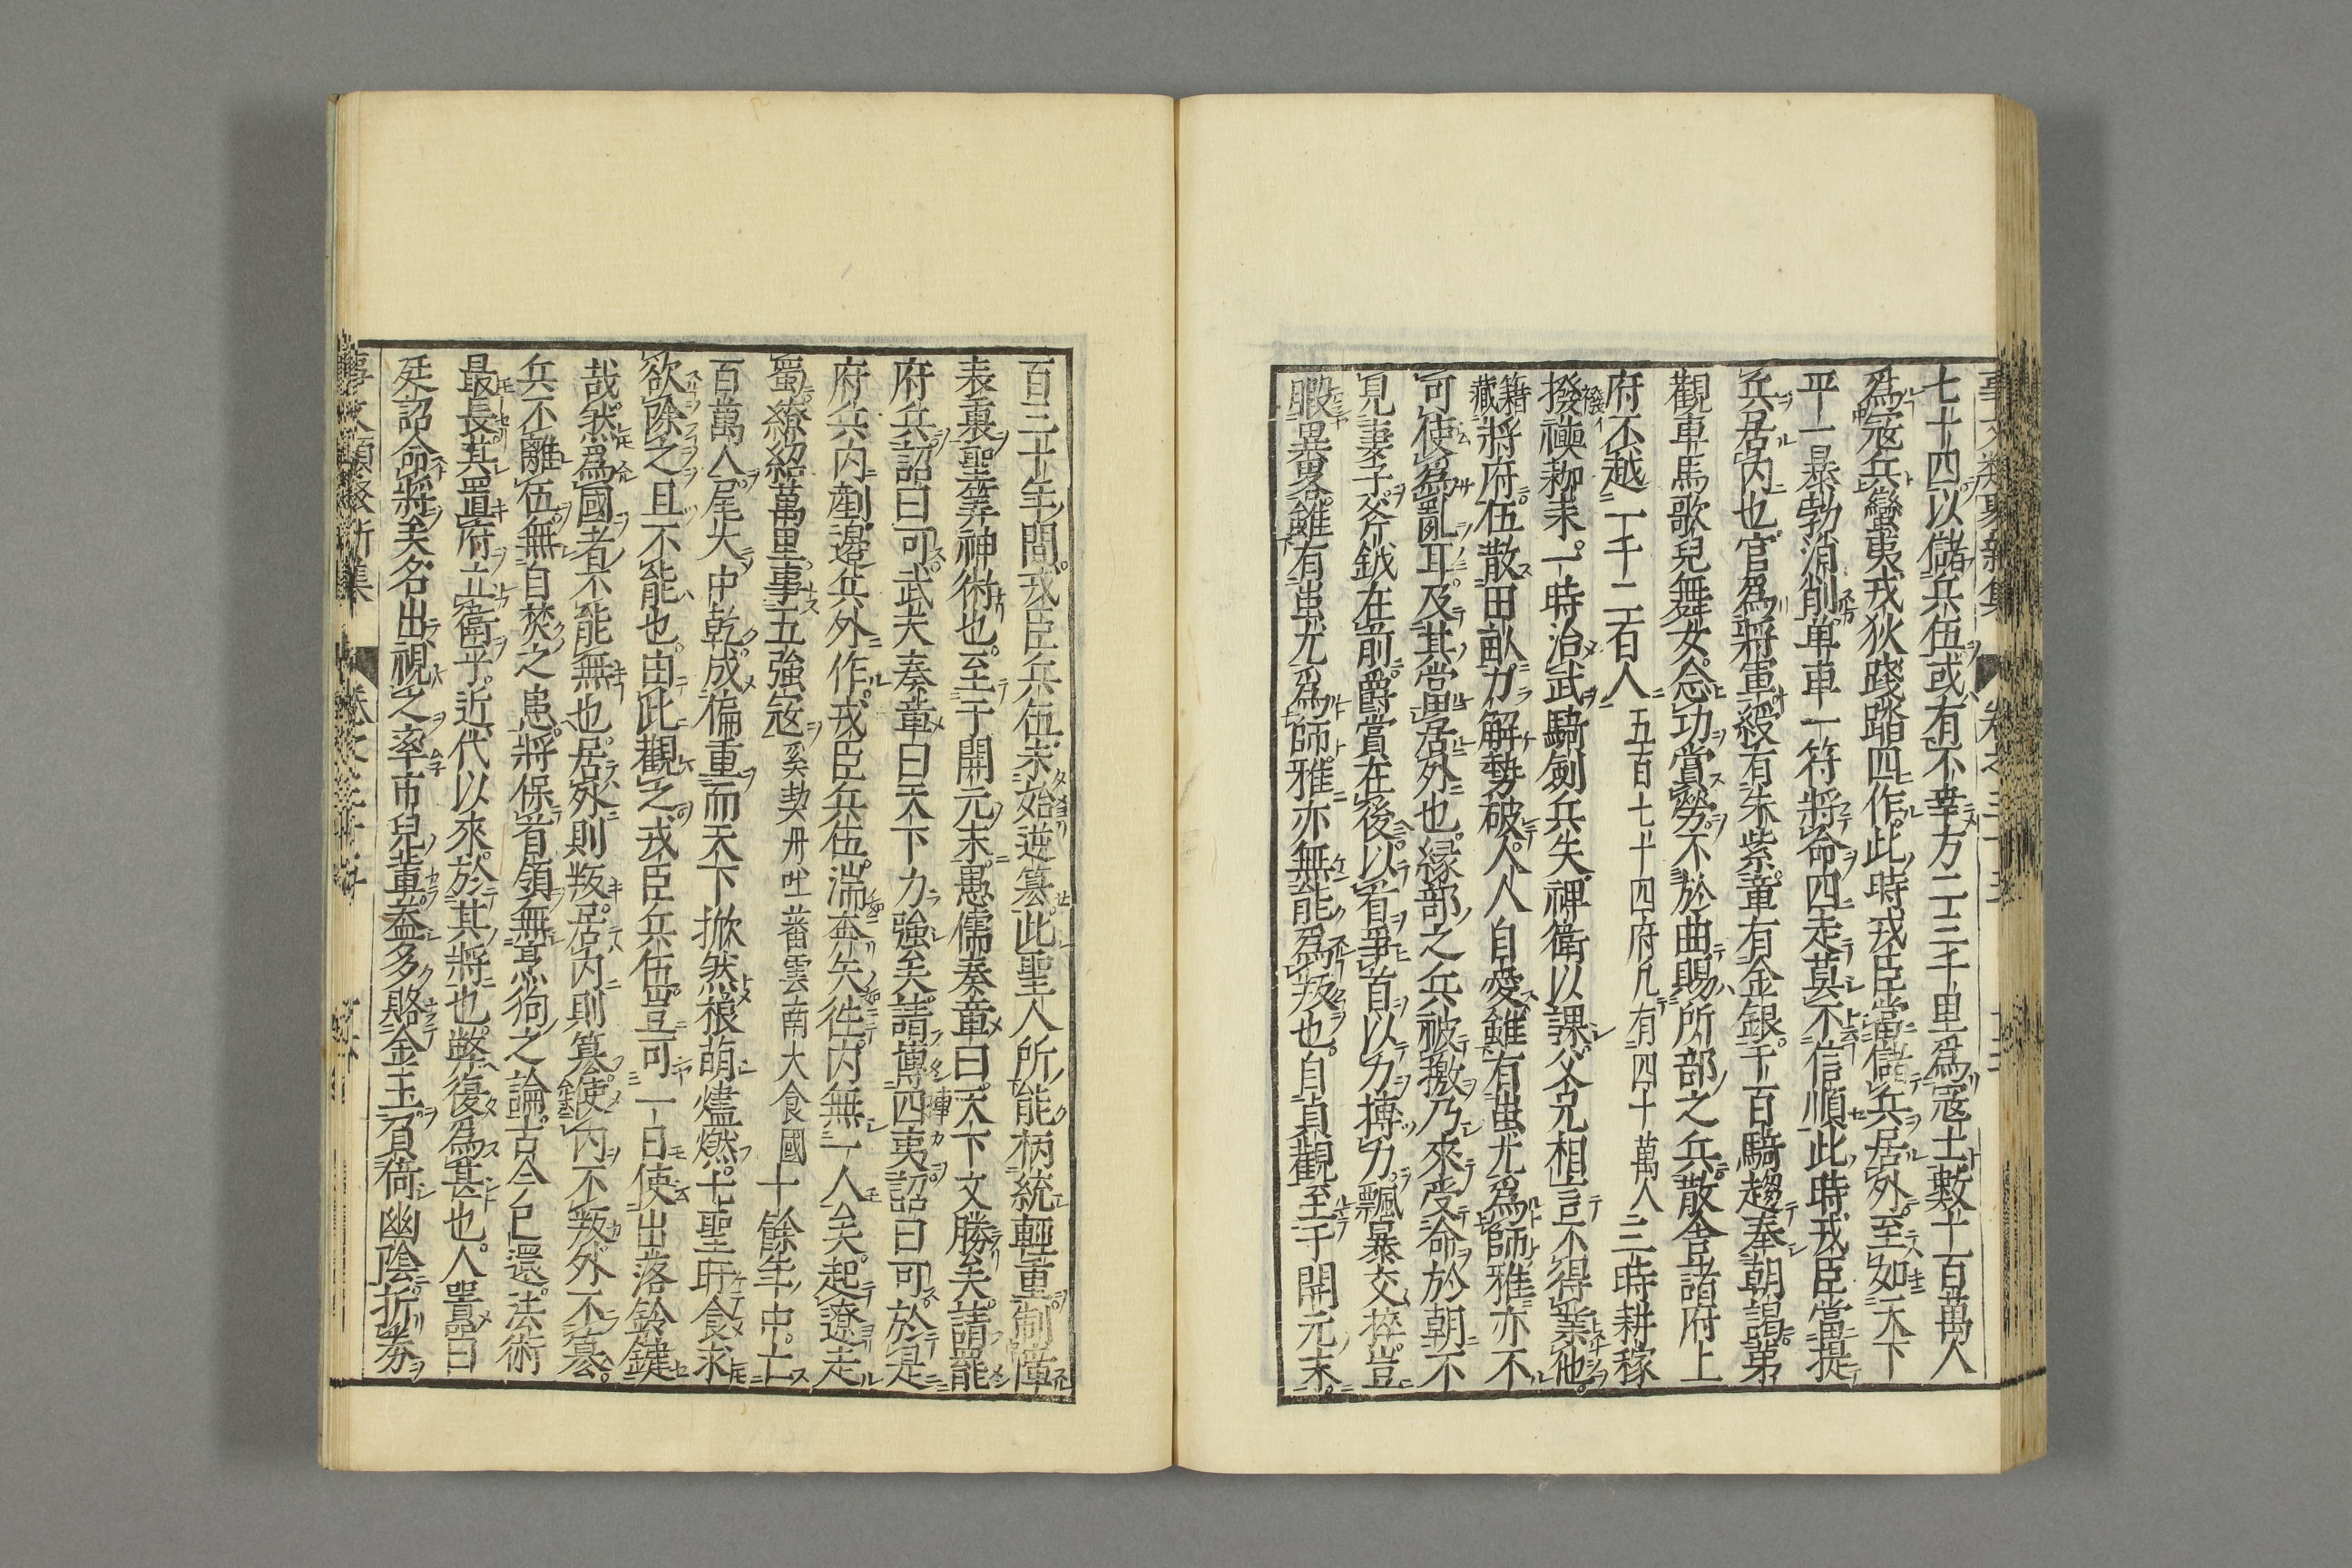 七十四以儲兵伍或有不幸方二三千里爲寇土數十百萬人
爲寇兵蠻夷戎狄踐踏四作此時戎臣當儲兵居外至如天下
平一暴勃消削單車一符將命四走莫不信順此時戎臣當提
兵居內也官爲將軍綬有朱紫章有金銀千百騎趨奉朝謁第
觀車馬歌兒舞女念功賞勞不於曲賜所部之兵散舍諸府上
府不越一千二百人五百七十四府凡有四十萬人三時耕稼
撥襏耞耒一時治武騎劍兵矢裨衛以課父兄相言不得業他
籍藏將府伍散田畝力解勢破人人自愛雖有蚩尤爲師雅亦不
可使爲亂耳及其當居外也緣部之兵被檄乃來受命於朝不
見妻子斧鉞在前爵賞在後以首爭首以力搏力飄暴交捽豈
暇異畧雖有蚩尤爲師雅亦無能爲叛也自貞觀至于開元末
百三十年間戎臣兵伍未始逆篡此聖人所能柄統輕重制障
表裏聖筭神術也至于開元末愚儒奏章曰天下文勝矣請罷
府兵詔曰可武夫奏章曰天下力強矣請搏四夷詔曰可於是
府兵內剷邊兵外作戎臣兵伍湍奔矢徃內無一人矣起遼走
蜀繚絡萬里事五強寇奚契丹吐蕃雲南大食國十餘年中亡
百萬人尾大中乾成偏重而天下掀然根萌燼燃七聖旰食求
欲除之且不能也由此觀之戎臣兵伍豈可一日使出落鈐鍵
哉然爲國者不能無也居外則叛居內則篡使內不叛外不篡
兵不離伍無自焚之患將保首領無烹狗之論古今已還法術
最長其置府立衛乎近代以來於其將也弊復爲甚也人嚚曰
廷詔命將矣名出視之率市兒輩葢多賂金玉負倚幽陰折券